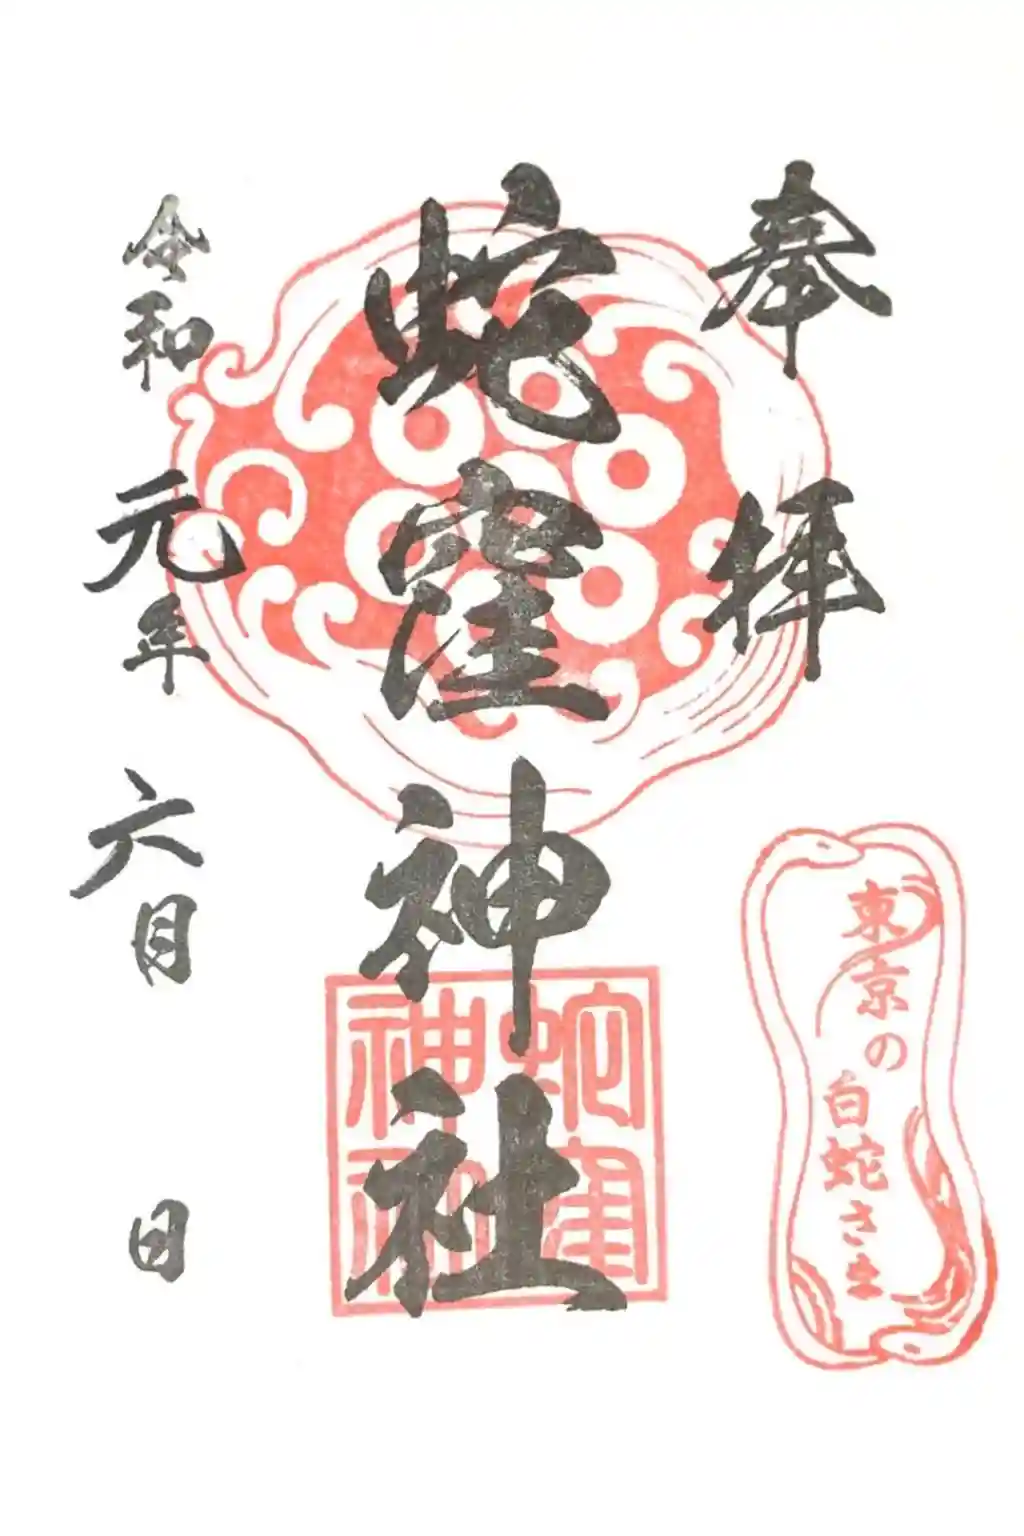 奉拝
蛇窪神社
令和元年六月 日
蛇窪神社
東京の
白蛇さま